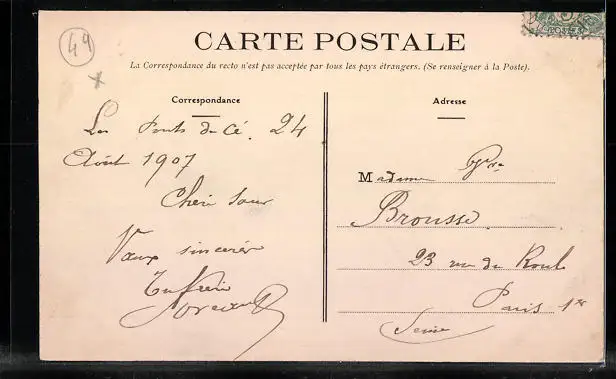 44
CARTE POSTALE
La Correspondance du recto n'est pas acceptée par tous les pays étrangers. (Se renseigner à la Poste).
Correspondance
Les Ponts de Cé. 24
Août 1907
Cheri Sœur
Vœux sincères
Ton frère
Adresse
Madame Vve
Brousse
23 rue du Roule
Paris 1er
Seine
POSTES